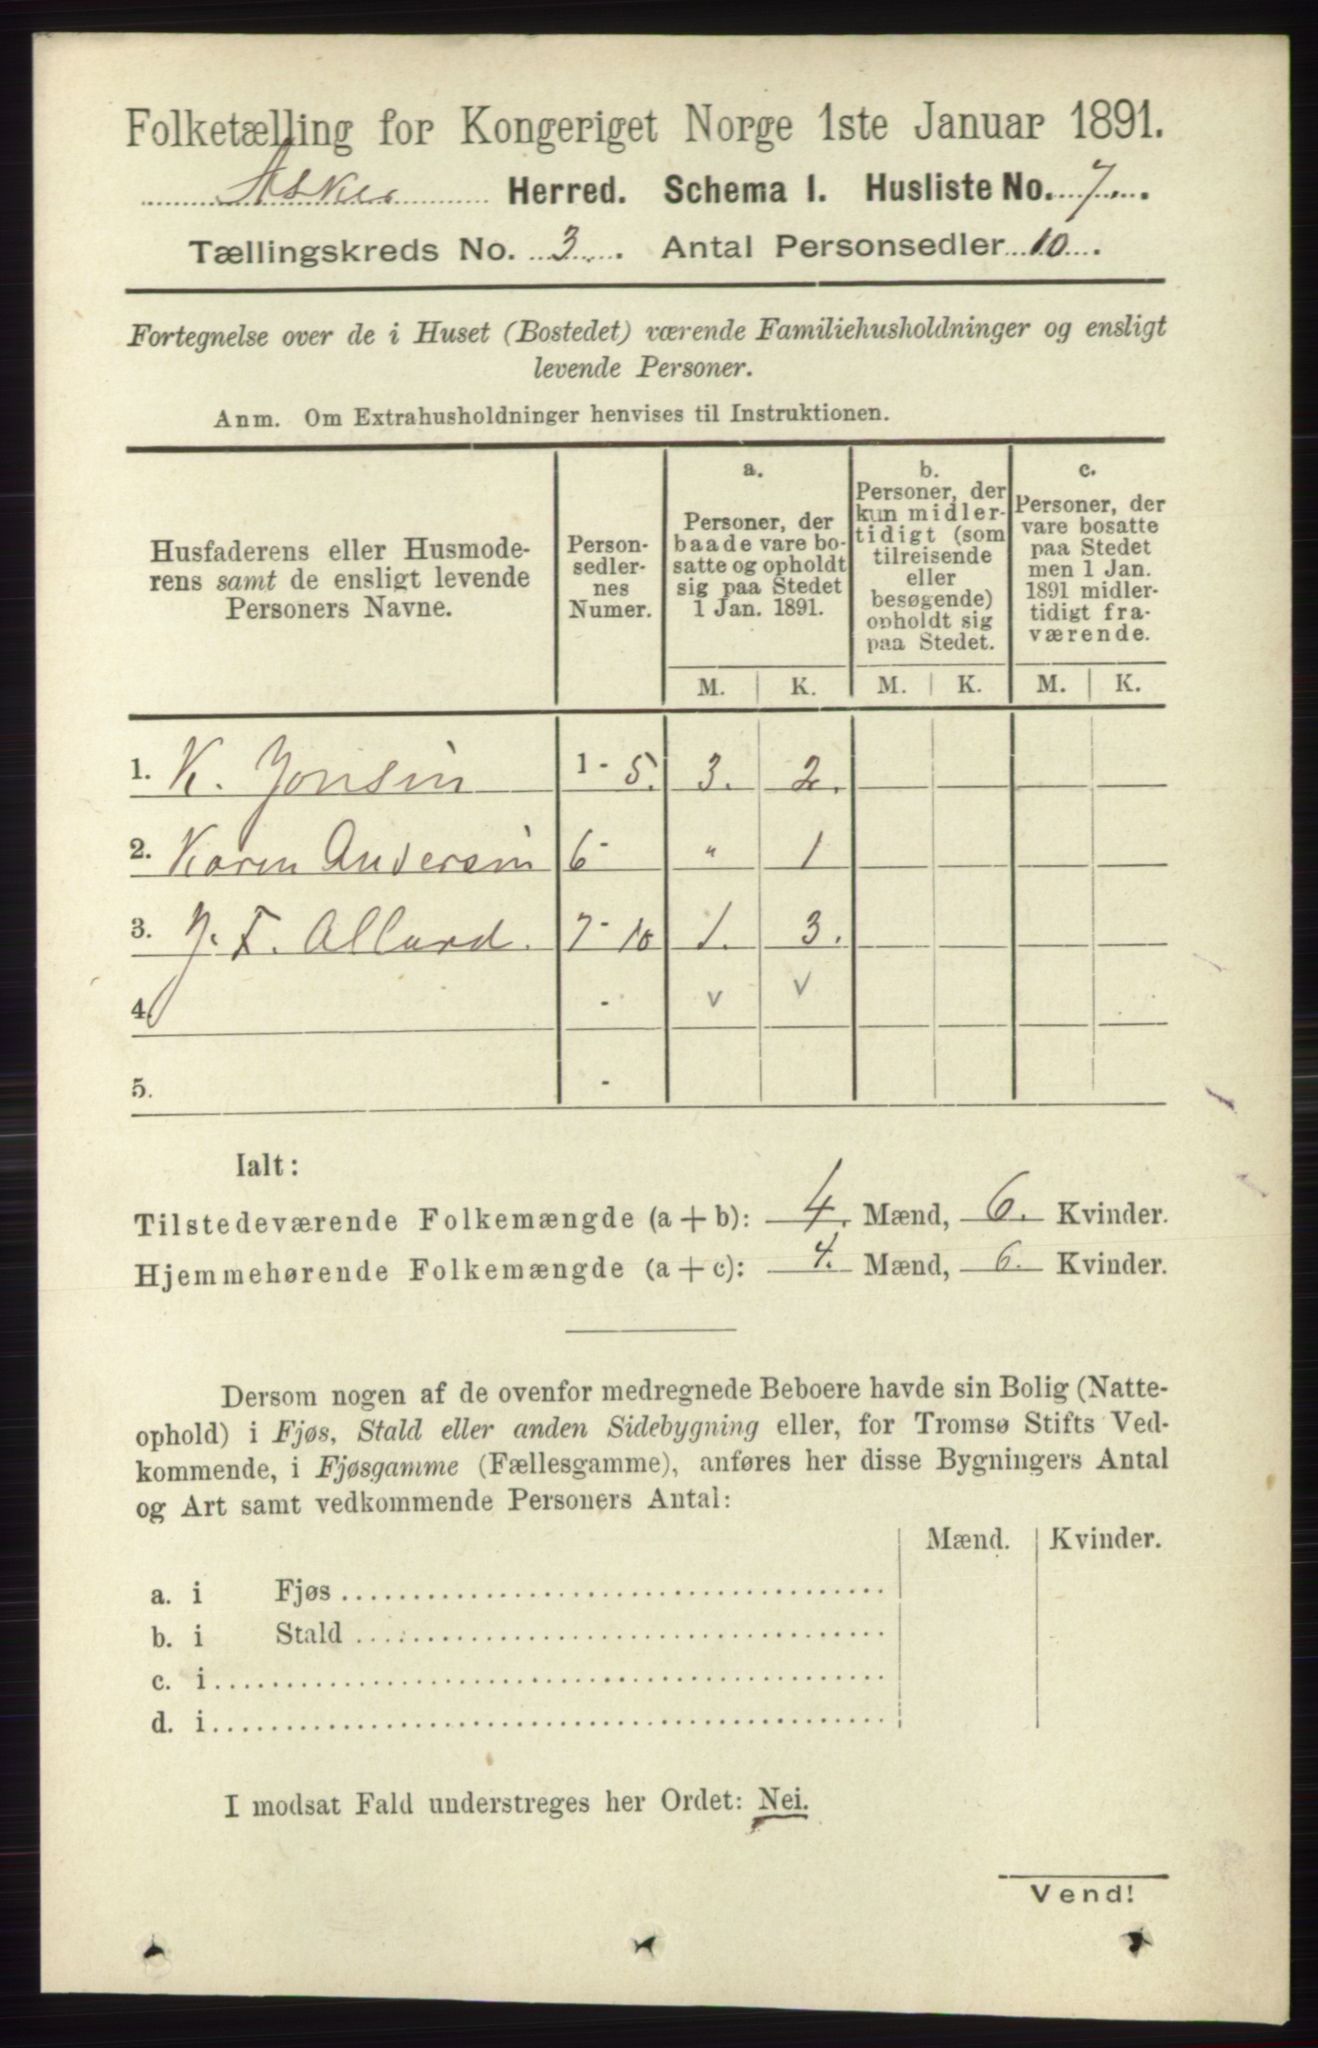 Folketælling for Kongeriget Norge 1ste Januar 1891.
Asker Herred. Schema I. Husliste No. 7.
Tællingskreds No. 3. Antal Personsedler 10.
Fortegnelse over de i Huset (Bostedet) værende Familiehusholdninger og ensligt
levende Personer.
Anm. Om Extrahusholdninger henvises til Instruktionen.
Husfaderens eller Husmode-
rens samt de ensligt levende
Personers Navne.
Person-
sedler-
nes
Numer.
a.
Personer, der
baade vare bo-
satte og opholdt
sig paa Stedet
1 Jan. 1891.
b.
Personer, der
kun midler-
tidigt (som
tilreisende
eller
besøgende)
opholdt sig
paa Stedet.
c.
Personer, der
vare bosatte
paa Stedet
men 1 Jan.
1891 midler-
tidigt fra-
værende.
M. K. M. K. M. K.
1. K. Jonsen 1 - 5. 3. 2.
2. Karen Andersen 6 - " 1
3. J. F. Allard. 7 - 10 1. 3.
4. - v v
5. -
Ialt:
Tilstedeværende Folkemængde (a + b): 4. Mænd, 6. Kvinder.
Hjemmehørende Folkemængde (a + c): 4. Mænd, 6. Kvinder.
Dersom nogen af de ovenfor medregnede Beboere havde sin Bolig (Natte-
ophold) i Fjøs, Stald eller anden Sidebygning eller, for Tromsø Stifts Ved-
kommende, i Fjøsgamme (Fællesgamme), anføres her disse Bygningers Antal
og Art samt vedkommende Personers Antal:
Mænd. Kvinder.
a. i Fjøs
b. i Stald
c. i
d. i
I modsat Fald understreges her Ordet: Nei.
Vend!